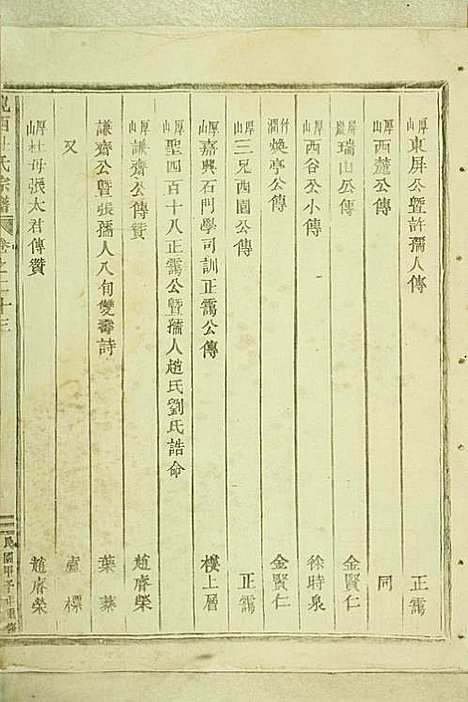 厚山 東屏公暨許孺人傳 正靄
厚山 西麓公傳 同
瑞山公傳 金賢仁
厚山 西谷公小傳 徐時泉
竹澗 煥亭公傳 金賢仁
厚山 三兄西園公傳 正靄
厚山 嘉興石門學司訓正靄公傳 樓上層
厚山 聖四百十八正靄公暨孺人趙氏劉氏誥命
厚山 謙齋公傳贊 趙睿榮
謙齋公暨張孺人八旬雙壽詩 葉蓁
又 盧標
厚山 杜母張太君傳贊 趙睿榮
杜氏宗譜 卷之二十三 民國甲子